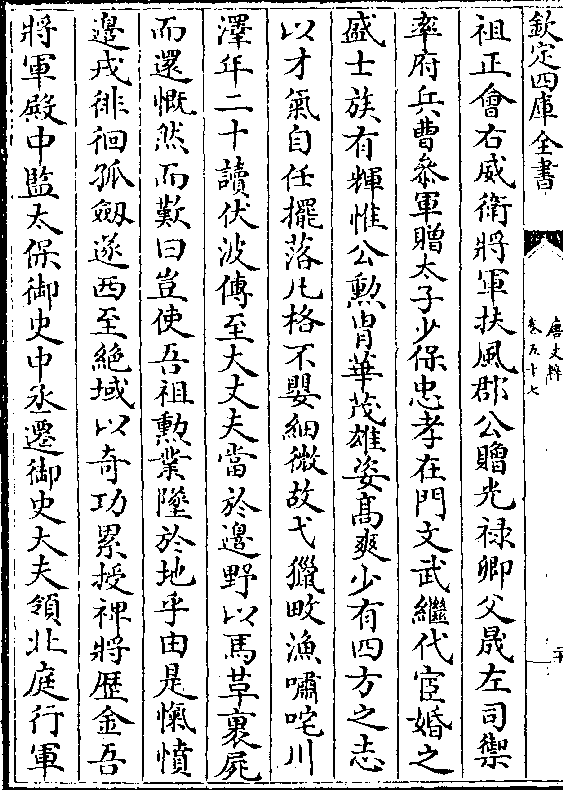 欽定四庫全書
唐文粹
卷五十七
祖正會右威衛將軍扶風郡公贈光祿卿父晟左司禦
率府兵曹叅軍贈太子少保忠孝在門文武繼代宦婚之
盛士族有輝惟公勲胄華茂雄姿髙爽少有四方之志
以才氣自任擺落凡格不嬰細微故弋獵畋漁嘯咤川
澤年二十讀伏波傳至大丈夫當於邊野以馬革裹屍
而還慨然而歎曰豈使吾祖勲業墜於地乎由是慷憤
邊戎徘徊孤劔遂西至絶域以竒功累授禆將歴金吾
將軍殿中監太保御史中丞遷御史大夫領北庭行軍